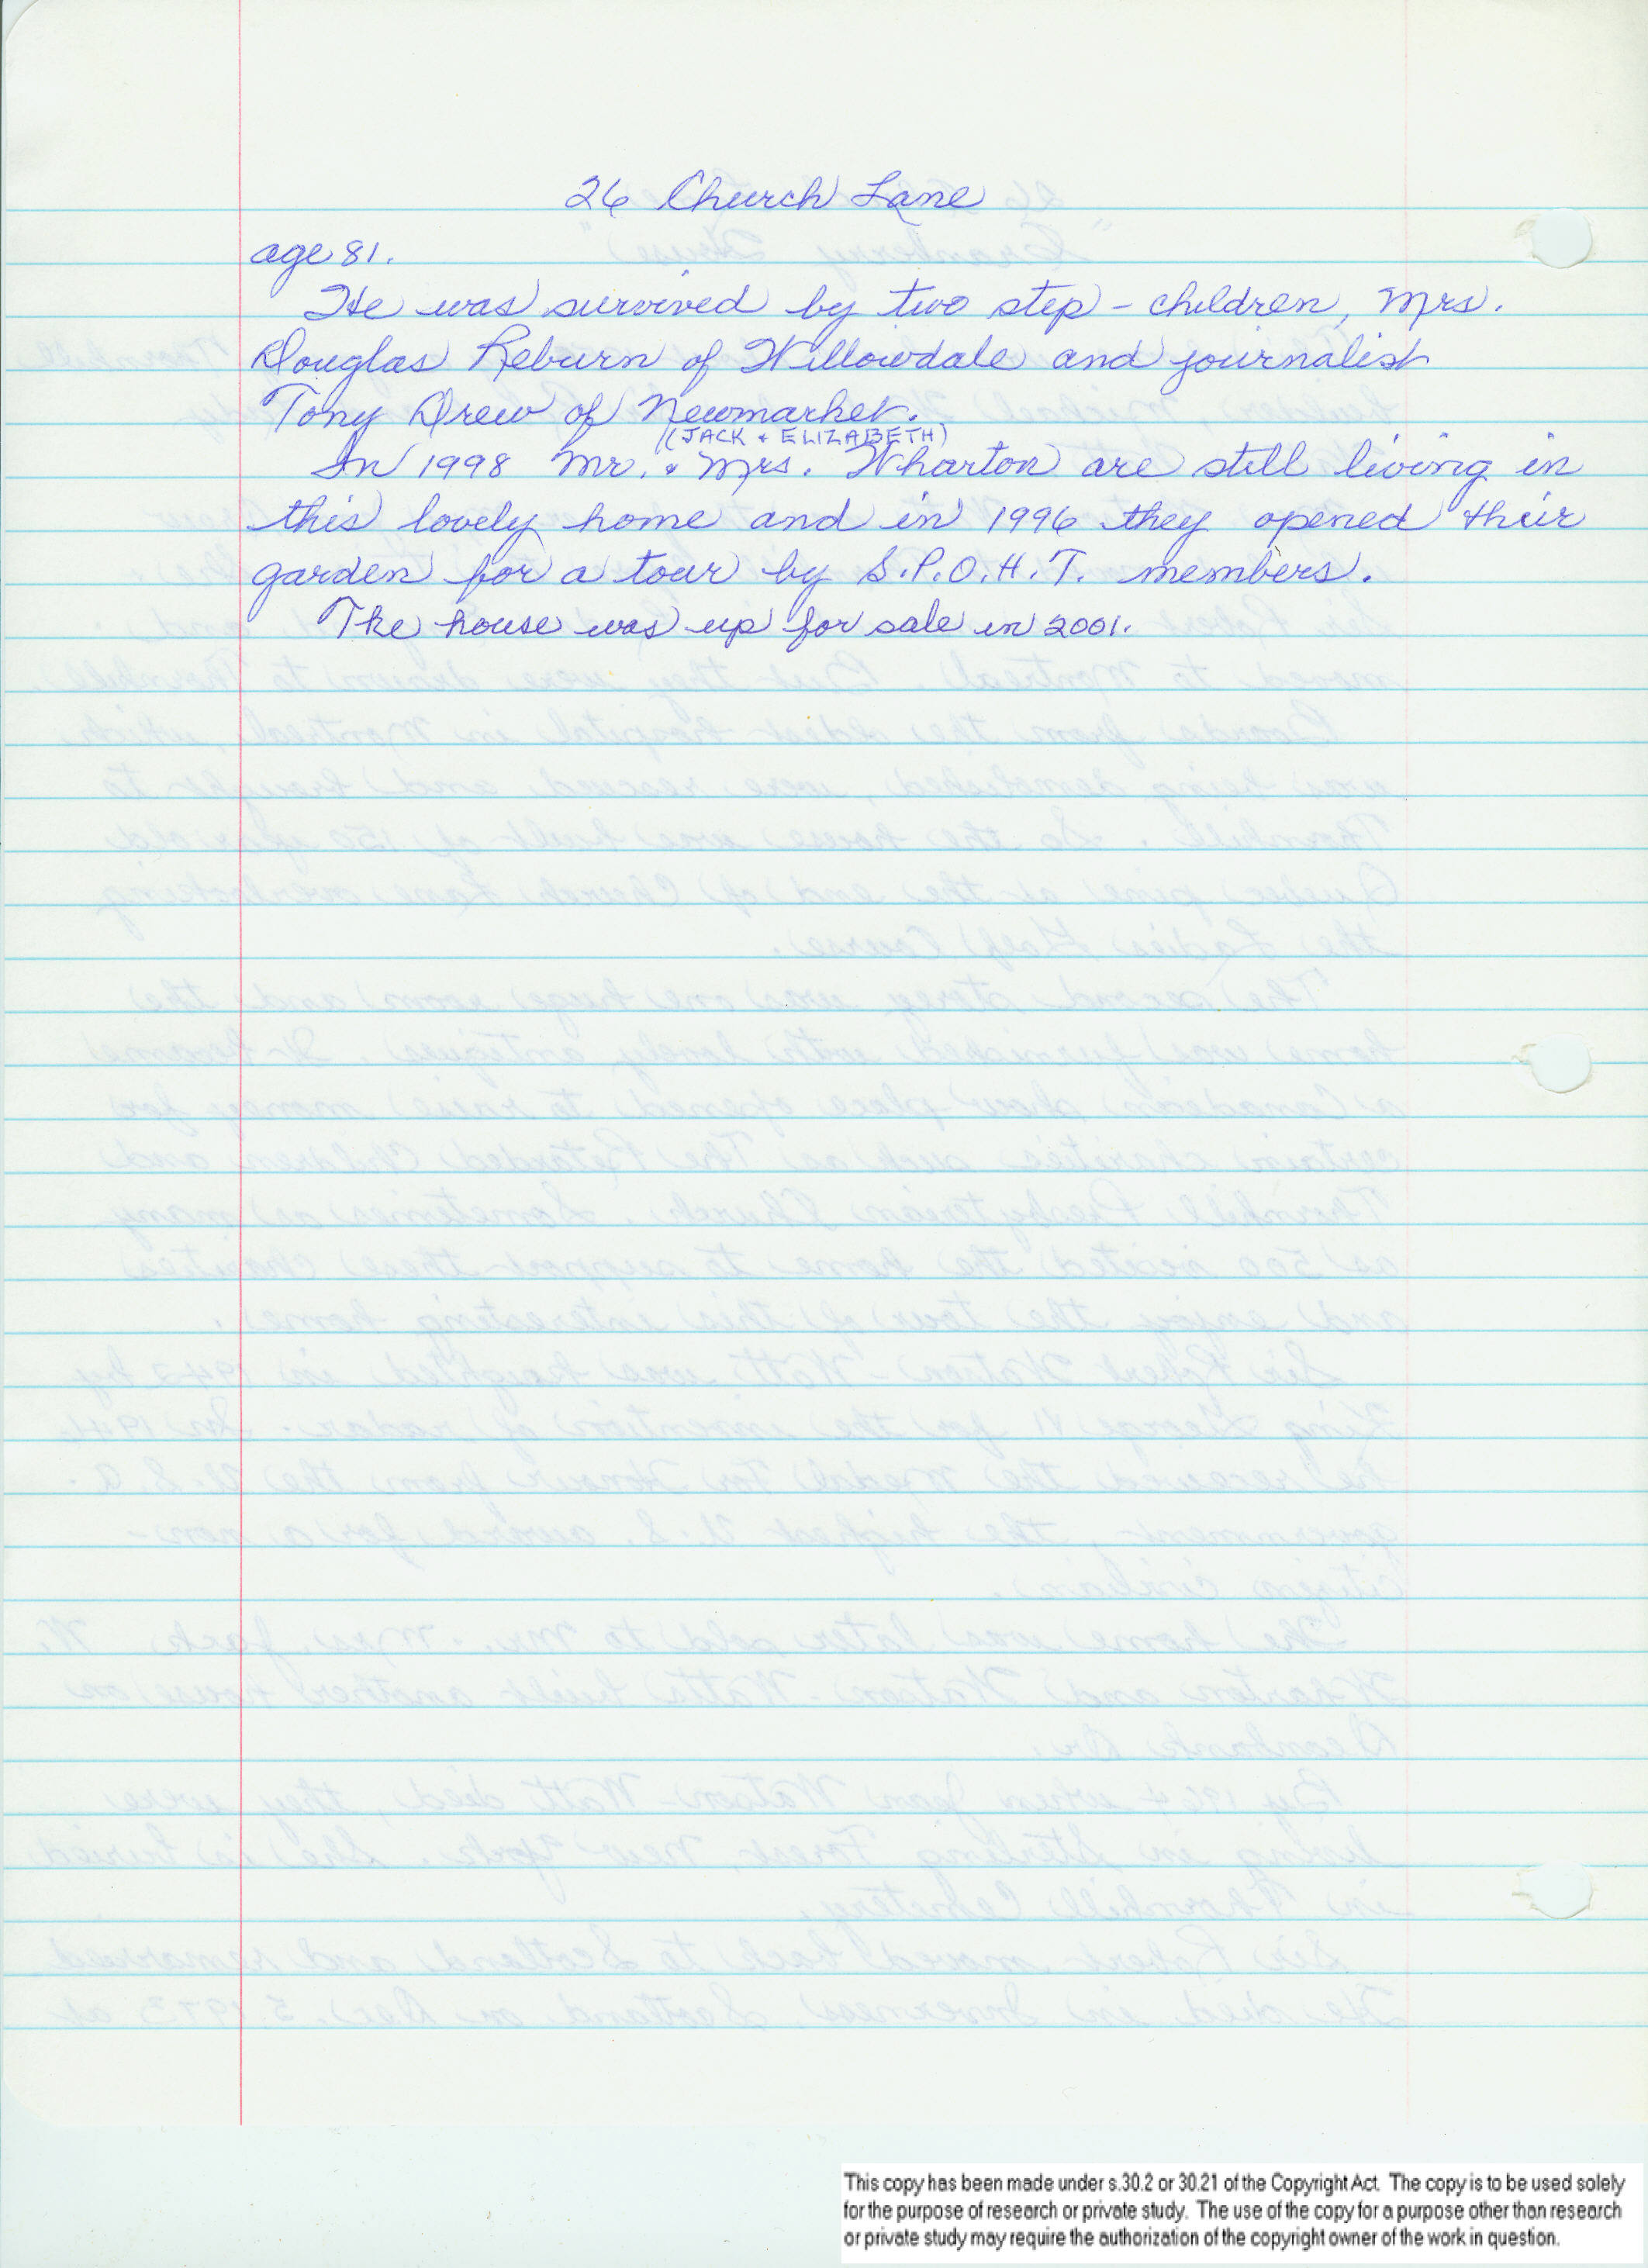 26 Church Lane
age 81.
He was survived by two step-children, Mrs.
Douglas Reburn of Willowdale and journalist
Tony Drew of Newmarket.
(JACK & ELIZABETH)
In 1998 Mr. & Mrs. Wharton are still living in
this lovely home and in 1996 they opened their
garden for a tour by S.P.O.H.T. members.
The house was up for sale in 2001.
This copy has been made under s.30.2 or 30.21 of the Copyright Act. The copy is to be used solely
for the purpose of research or private study. The use of the copy for a purpose other than research
or private study may require the authorization of the copyright owner of the work in question.